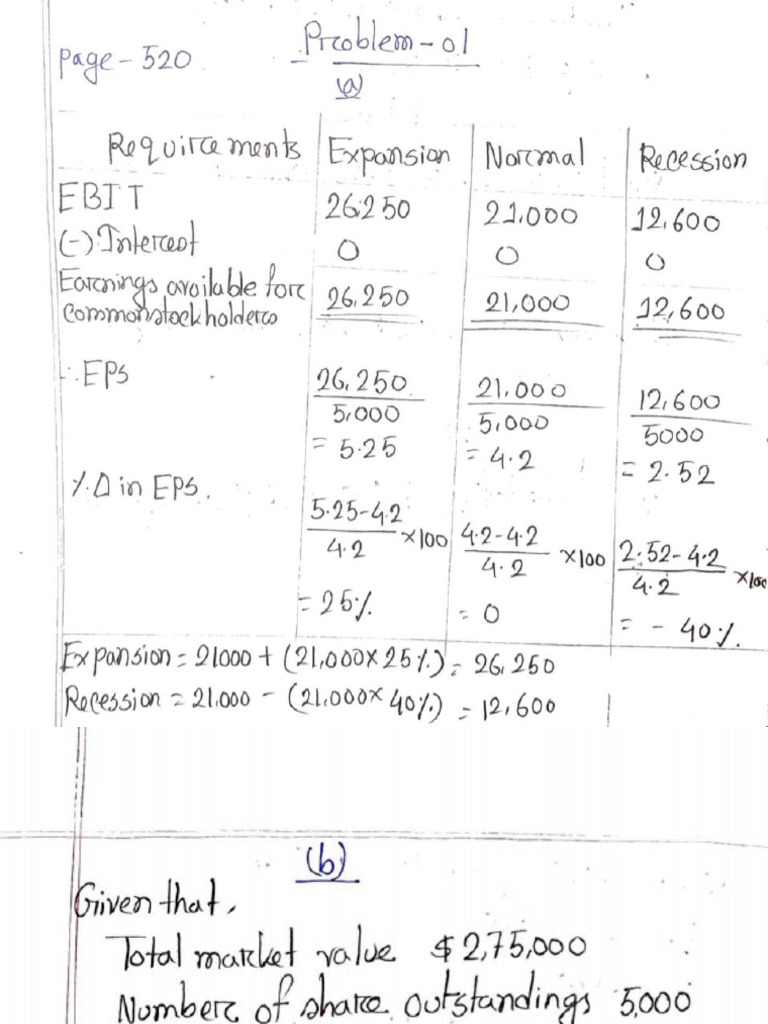 Page - 520
Problem - 01
(a)
Requirements Expansion Normal Recession
EBIT 26,250 21,000 12,600
(-) Interest 0 0 0
Earnings available for
common stock holders 26,250 21,000 12,600
∴ EPS 26,250/5,000 21,000/5,000 12,600/5000
= 5.25 = 4.2 = 2.52
% Δ in EPS. 5.25-4.2/4.2 ×100 4.2-4.2/4.2 ×100 2.52-4.2/4.2 ×100
= 25% = 0 = - 40%.
Expansion = 21000 + (21,000×25%) = 26,250
Recession = 21,000 - (21,000×40%) = 12,600
(b)
Given that,
Total market value $ 2,75,000
Number of share outstandings 5,000